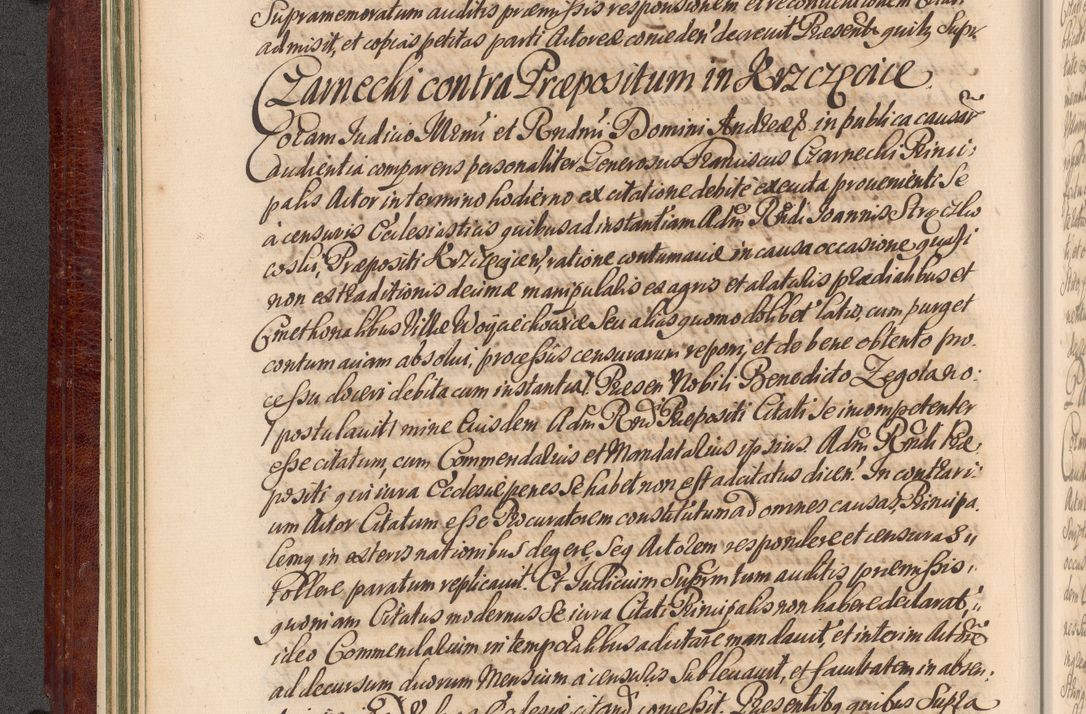 Supramemoratum auditis præmissis responsionem et
admisit, et copias petitas parti Actoreæ conceden' decrevit Presentib quib, Supr
Czarnecki contra Præpositum in Krzczęcice.
Coram Judicio Illmi et Rndmi Domini Andreæ &. in publica causar
audientia comparens personaliter Generosus Franciscus Czarnecki Princi,
palis Actor in termino hodierno ex citatione debite executa provenienti Se
à censuris Ecclesiasticis quibus ad instantiam Adm Rndi Joannis
Præpositi Krzczęcien', ratione contumaciæ in causa occasione quasi
non extraditionis decimæ manipularis ex agris et alatalis prædialibus et
Cmethonalibus Villæ Woyciechowice Seu alias quomodolibet latis, cum purget
contumaciam absolvi, processus censurarum reponi, et de bene obtento pro
cessu doceri debita cum instantia / Presen Nobili Benedicto Zegola no:
/ postulavit / mine Eiusdem Adm Rndi Præpositi Citati Se incompetenter
esse citatum, cum Commendarius et Mandatarius ipsius Adm Rndi Præ,
positi qui iura Ecclesiæ penes Se habet non est adcitatus dicen'. In contrari:
um Actor Citatum esse Procuratorem constitutum ad omnes causas, Principa
lemq in exteris nationibus degere, Seq Actorem respondere et censuras
tollere paratum replicavit. Et Judicium Suprmtum auditis præmissis,
quoniam Citatus modernus Se iura Citati Principalis non habere declarat,
ideo Commendarium in temporalibus adcitare mandavit, et interim Actorē
ad decursum duorum Mensium à censuris Sublevavit, et facultatem in absen,
Ecclesiæ citand concessit. Presentibq quibus Supra